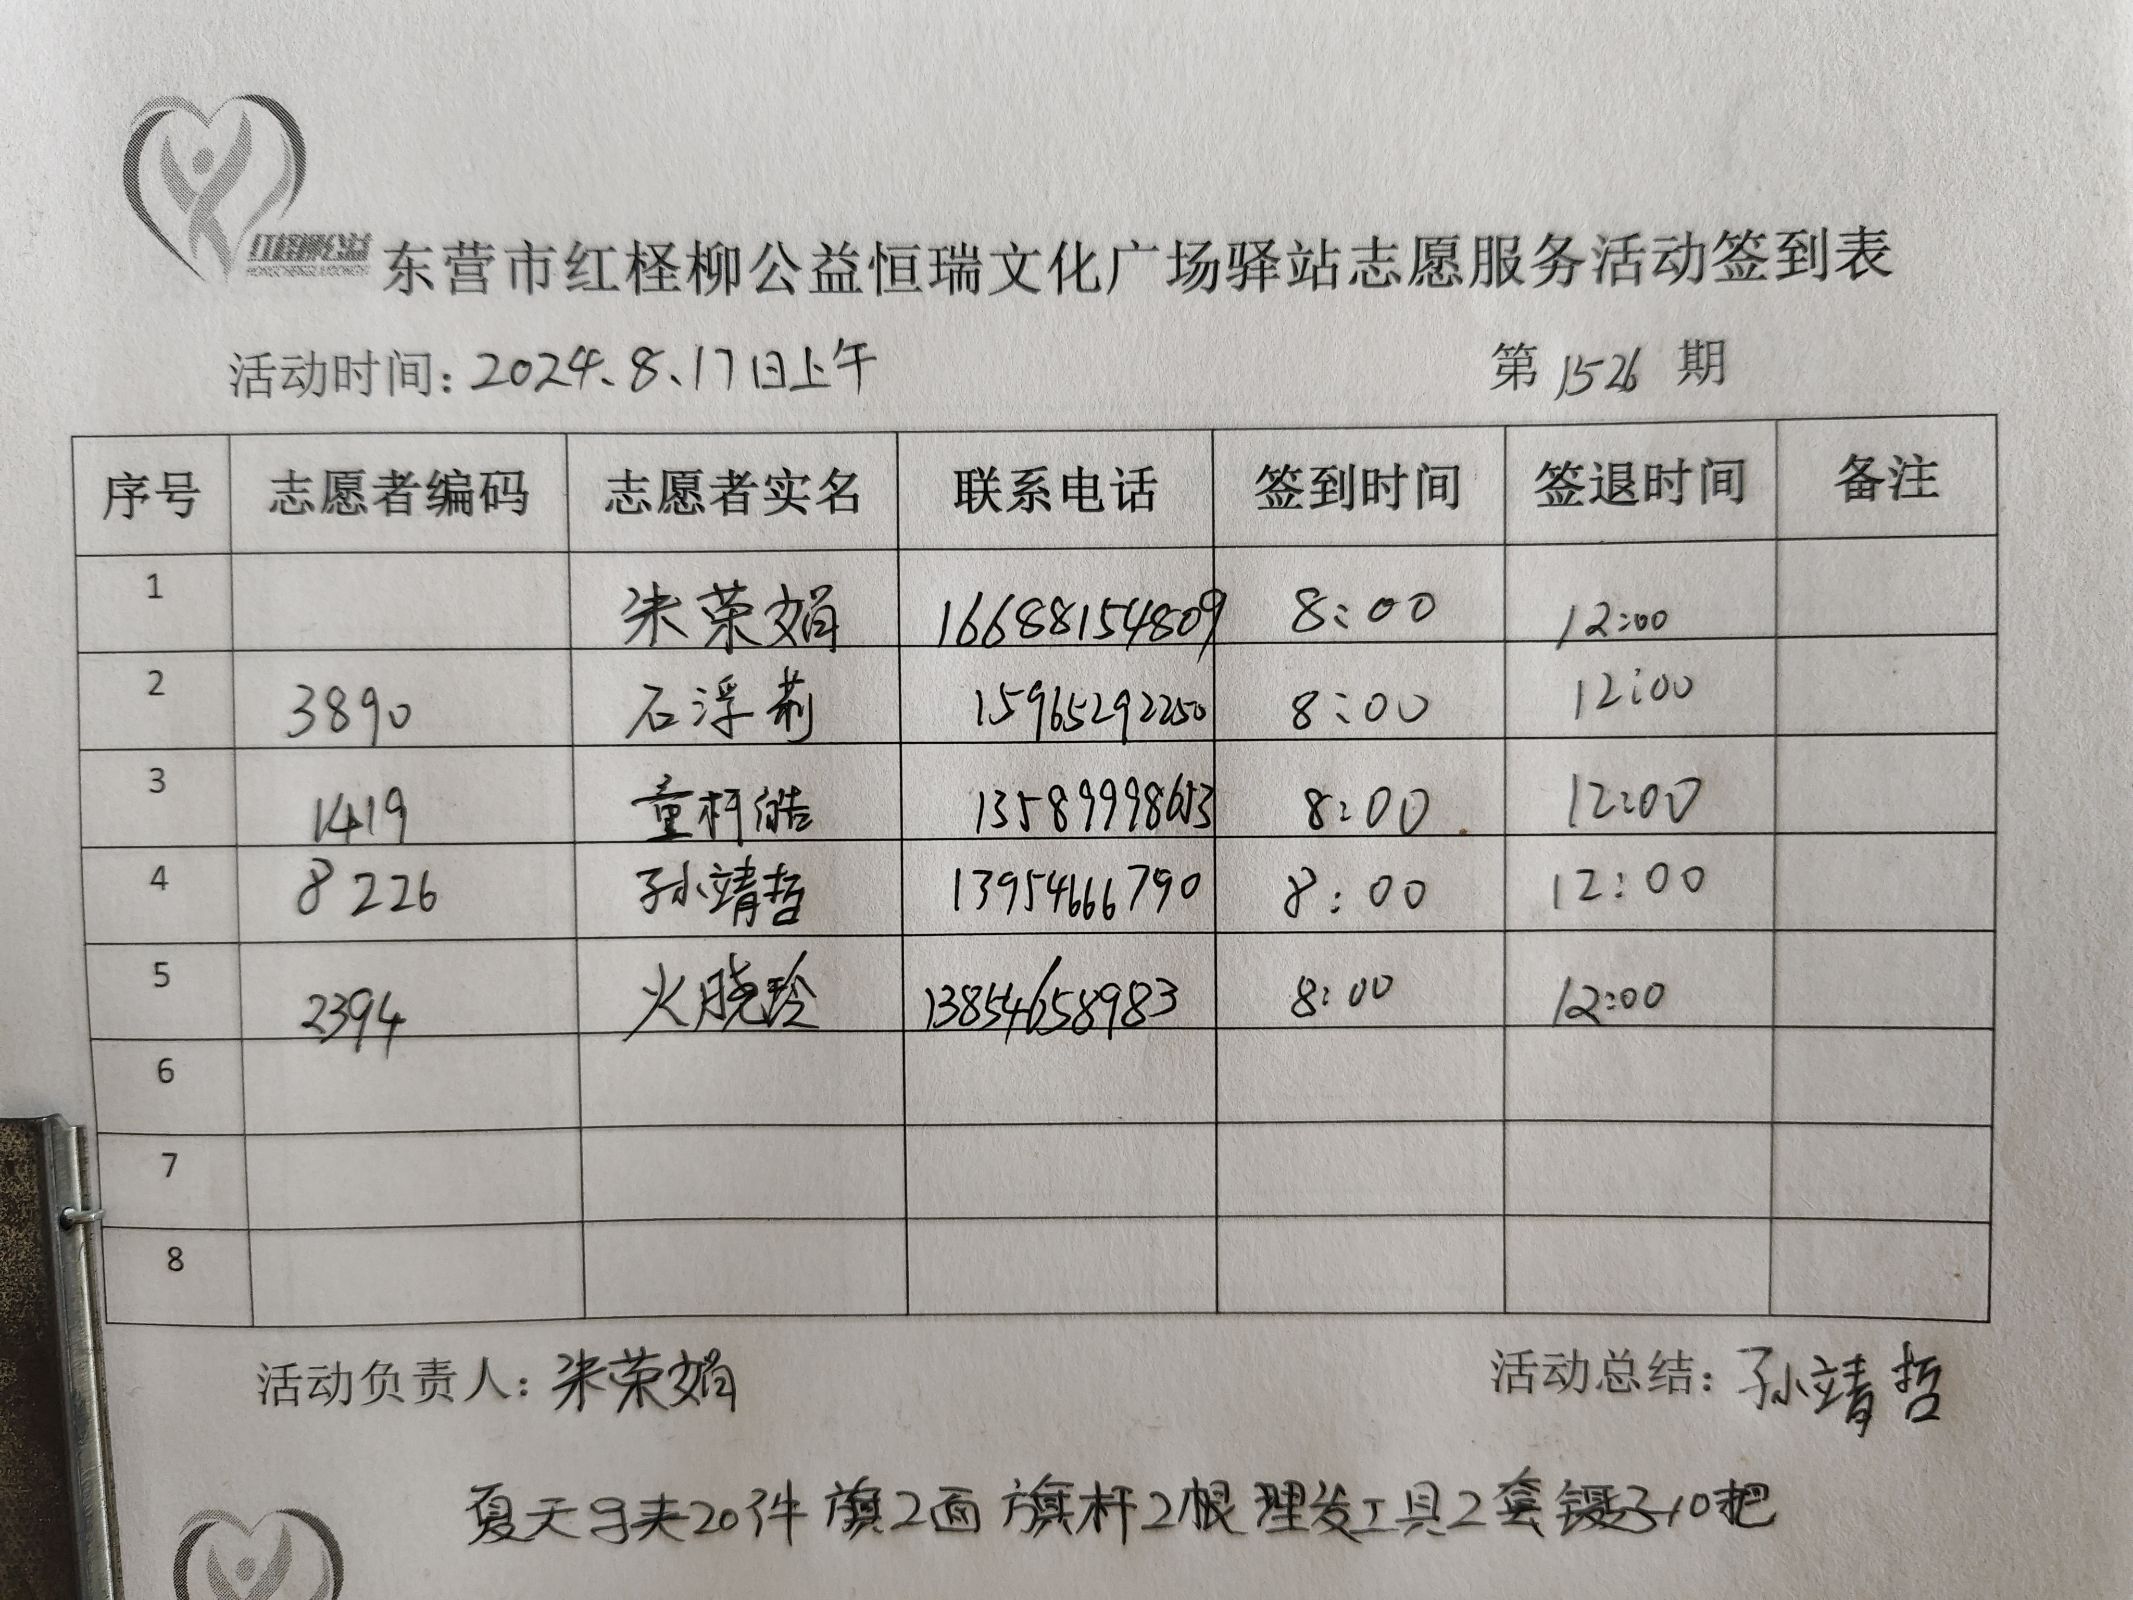 红柽柳公益
东营市红柽柳公益恒瑞文化广场驿站志愿服务活动签到表
活动时间：2024、8、17日上午 第 1526 期
序号 志愿者编码 志愿者实名 联系电话 签到时间 签退时间 备注
1 朱荣娟 16688154809 8:00 12:00
2 3890 石浮莉 15965292250 8:00 12:00
3 1419 童柯皓 13589998653 8:00 12:00
4 8226 孙靖哲 13954666790 8:00 12:00
5 2394 火晓玲 13854658983 8:00 12:00
6
7
8
活动负责人：朱荣娟 活动总结：孙靖哲
夏天马夹20件 旗2面 旗杆2根 理发工具2套 镊子10把